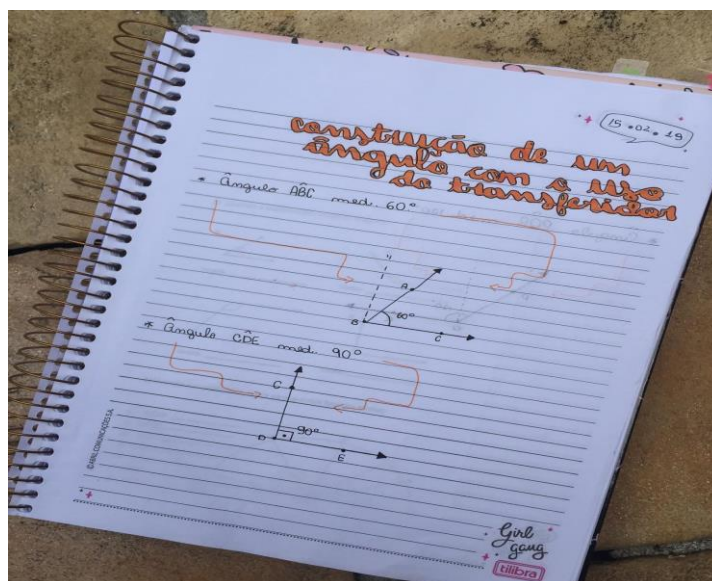 15.02.19
construção de um
ângulo com o uso
do transferidor
* Ângulo AB̂C med. 60º.
A
B
60º
C
* Ângulo CD̂E med. 90º
C
D
90º
E
Girl
gang
tilibra